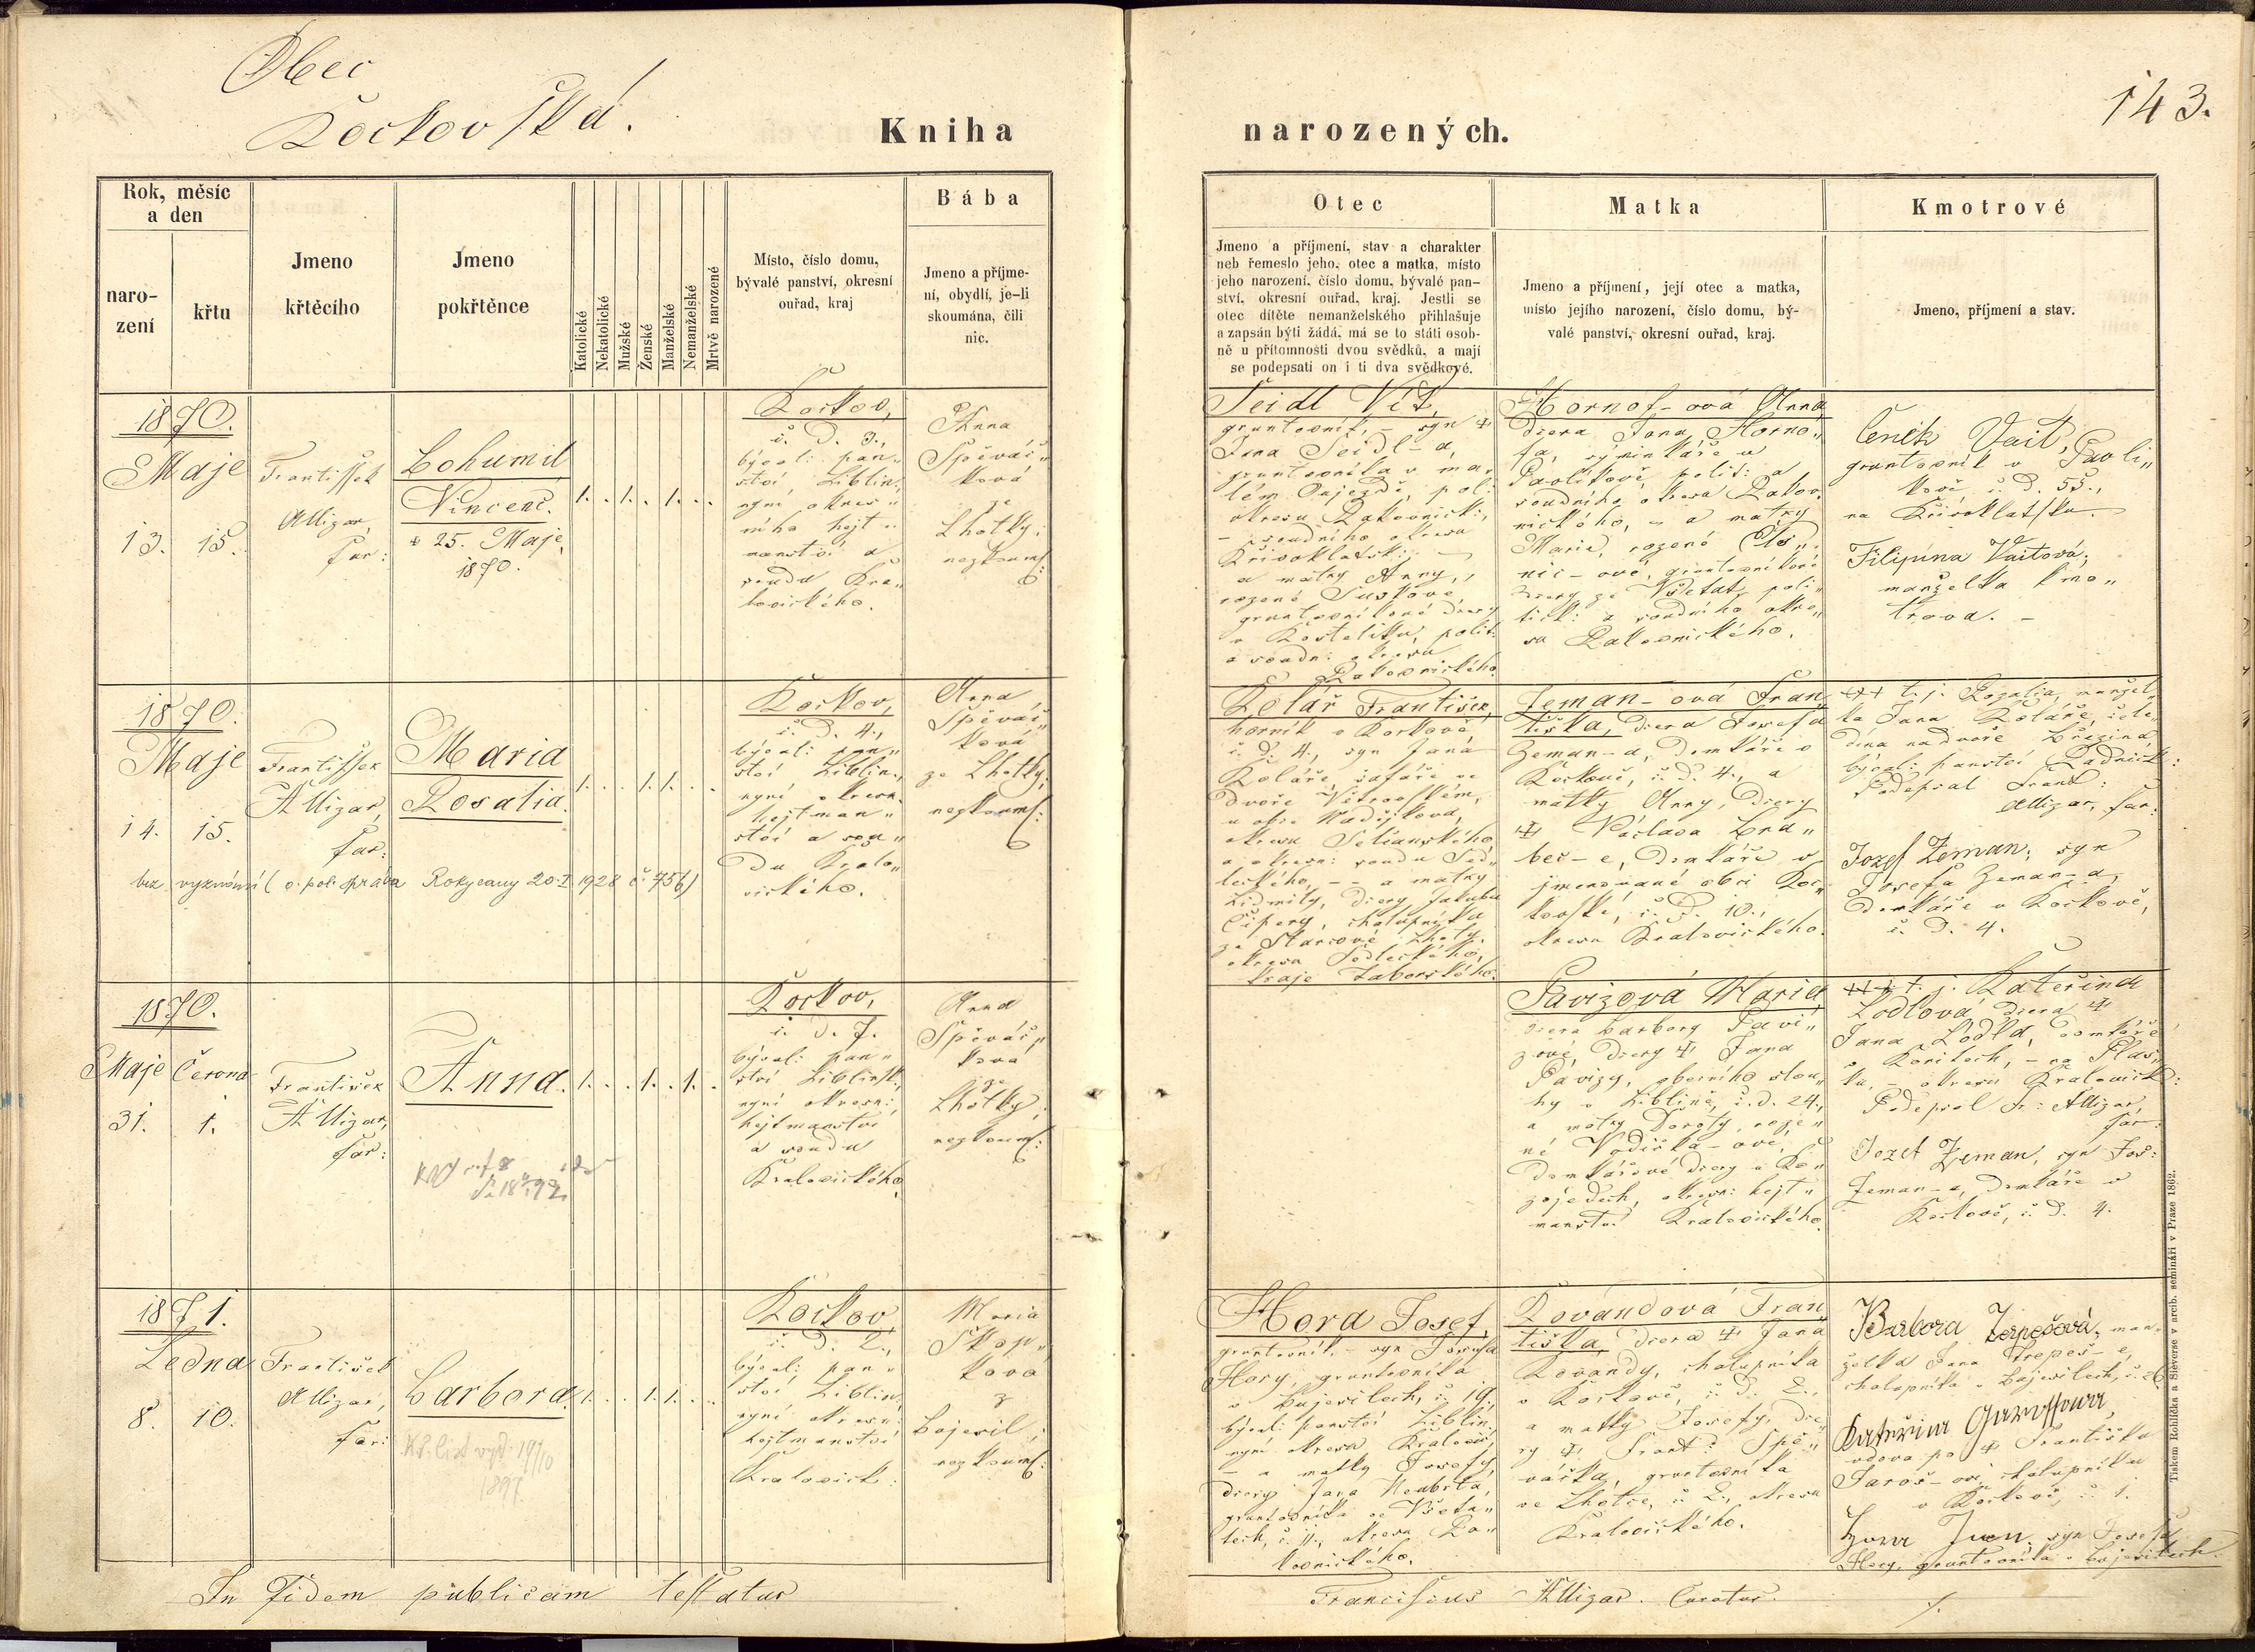 Obec
Kočkovská.
143.
Kniha narozených.
Rok, měsíc
a den
naro-
zení
křtu
Jmeno
křtěcího
Jmeno
pokřtěnce
Katolické
Nekatolické
Mužské
Ženské
Manželské
Nemanželské
Mrtvě narozené
Místo, číslo domu,
bývalé panství, okresní
ouřad, kraj
Bába
Jmeno a příjme-
ní, obydlí, je-li
skoumána, čili
nic.
Otec
Jmeno a příjmení, stav a charakter
neb řemeslo jeho, otec a matka, místo
jeho narození, číslo domu, bývalé pan-
ství, okresní ouřad, kraj. Jestli se
otec dítěte nemanželského přihlašuje
a zapsán býti žádá, má se to státi osob-
ně u přítomnosti dvou svědků, a mají
se podepsati on i ti dva svědkové.
Matka
Jmeno a příjmení, její otec a matka,
místo jejího narození, číslo domu, bý-
valé panství, okresní ouřad, kraj.
Kmotrové
Jmeno, příjmení a stav.
1870.
Maje
13. 15.
Františsek
Alligar,
far:
Bohumil
Vincenc.
+ 25. Maje,
1870.
1. . 1. . 1. . .
Kočkov,
č. d. 3.,
býval: pan„
ství Liblin.,
nyní okres„
ního hejt„
manství a
soudu Kra„
lovického.
Anna
Spěváč„
ková
ze
Lhotky;
nezkoum:
Seidl Vít,
gruntovník, – syn +
Jana Seidl–a,
gruntovníka v ma„
lém Oujezdě, pol:
okresu Rakovnick:,
– soudního okresu
Křivoklátsk:, –
a matky Anny,
rozené Suskové,
gruntovníkové dcery
v Kostelíku, polit:
a soudn: okresu
Rakovnického.
Hornof–ová Anna,
dcera Jana Horno„
fa, výminkáře v
Pavlíkově polit: a
soudního okresu Rakov„
nického, – a matky
Marie, rozené
nic–ové, gruntovníkové
dcery ze Všetat, poli„
tick: a soudního okre„
su Rakovnického.
Čeněk Vait,
gruntovník v Pavlí„
kově č. d. 55.,
na Křivoklátsku.
Filipína Vaitová,
manželka kmo„
trova. –
1870.
Maje
14. 15.
Františsek
Alligar,
far:
Maria
Rosalia.
1. . . 1. 1. . .
bez vyznání (o. pol. správa Rokycany 20.I.1928 č. 756)
Kočkov,
č. d. 4.,
býval: pan„
ství Liblin.,
nyní okresn.
hejtman„
ství a sou„
du Kralo„
vického.
Anna
Spěváč„
ková
ze Lhotky;
nezkoum:
Kolář František,
horník v Kočkově,
č. d. 4., syn Jana
Koláře, šafáře ve
dvoře
u obce
okresu Selčanského,
a okresn: soudu Sed„
leckého, – – a matky
Lidmily, dcery Jakuba
Čipery, chalupníka
ze Starcové Lhoty,
okresu Sedleckého,
kraje Táborského.
Zeman–ová Fran„
tiška, dcera Josefa
Zeman–a, domkáře v
Kočkově, č. d. 4., a
matky Anny, dcery
+ Václava Bra„
bec–e, domkáře v
jmenované obci Koč„
kovské, č. d. 10.,
okresu Kralovického.
+++ t. j. Rozalia, manžel„
ka Jana Koláře, čele„
dína na dvoře Březina
býval: panství Radnick:
Podepsal Frant:
Alligar, far:
Jozef Zeman, syn
Josefa Zeman–a,
domkáře v Kočkově,
č. d. 4.
1870.
Maje Června
31. 1.
František
Alligar,
far:
Anna.
1. . . 1. . 1. .
Kočkov,
č. d. 7.
býval: pan„
ství Liblinsk.,
nyní okresn:
hejtmanství
a soudu
Kralovického.
Anna
Spěváč„
ková
ze
Lhotky;
nezkoum:
Pavizová Maria,
dcera Barbory Pavi„
zové, dcery + Jana
Pavizy, obecního slou„
hy v Liblíně, č. d. 24.,
a matky Doroty, roze„
né Vodička–ové,
domkářové dcery v Ko„
zojedech, okresn: hejt„
manství Kralovického.
+++ t. j. Kateřina
Lodlová dcera +
Jana Lodla, domkáře
v Kořitech, – na Plas„
ku, – okresu Kralovick:
Podepsal Fr: Alligar,
far:
Jozef Zeman, syn Jos:
Zeman–a, domkáře v
Kočkově, č. d. 4.
1871.
Ledna
8. 10.
František
Alligar,
far:
Barbora.
Kř. list vyd. 19/10
1897
1. . . 1. 1. . .
Kočkov,
č. d. 2.,
býval: pan„
ství Liblin.,
nyní okresn:
hejtmanství
Kralovick:
Maria
Škop„
ková
z
Bojesil;
nezkoum:
Hora Josef,
gruntovník, – syn Josefa
Hory, gruntovníka
v Bujesilech, č. 19.
býval: panství Liblin.
nyní okresu Kralovic.,
– a matky Josefy,
dcery Jana Neubrta,
gruntovníka ve Všeta„
tech, č. 11., okresu Ra„
kovnického.
Kovandová Fran„
tiška, dcera + Jana
Kovandy, chalupníka
v Kočkově, č. d. 2.,
a matky Josefy, dce„
ry + Frant: Spě„
váčka, gruntovníka
ve Lhotce, č. 2., okresu
Kralovického.
Barbora Trepešová, man„
želka Jana Trepeš–e,
chalupníka v Bujesilech, č. 26.
Kateřina Garossowa
vdova po + Františku
Jaroš–ovi, chalupníku
v Kočkově, č. 1.
Hora Jan, syn Josefa
Hory, gruntovníka v Bujesilech.
In fidem publicam testatur
Franciscus Alligar. Curatus.
Tiskem Rohlíčka a Sieverse v arcib. semináři v Praze 1862.